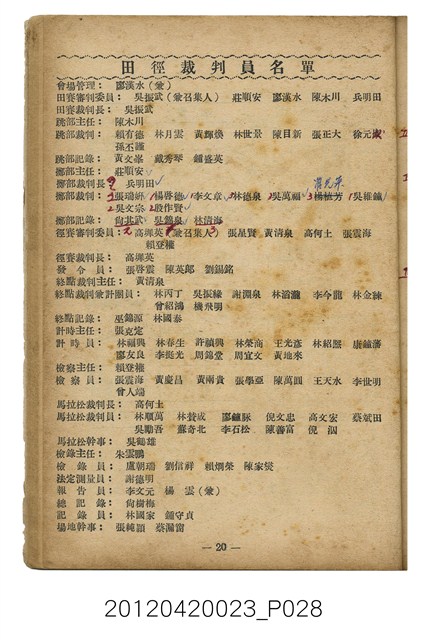 田徑裁判員名單
會場管理： 廖漢水（兼）
田賽審判委員： 吳振武（兼召集人） 莊順安 廖漢水 陳木川 兵明田
田賽裁判長： 吳振武
跳部主任： 陳木川
跳部裁判： 賴有德 林月雲 黃輝煥 林世景 陳目新 張正大
跳部記錄： 黃文華 戴秀琴 鍾盛英
擲部主任： 莊順安
擲部裁判長 兵明田
擲部裁判： 張瑞妍 楊啓德 李文章 林德泉 吳萬福 楊楨芳 吳維鑪
吳文宗 殷作賢
擲部記錄： 吳錦泉 林清海
徑賽審判委員： 高墀英（兼召集人） 張星賢 黃清泉 高何土 張震海
賴登權
徑賽裁判長： 高墀英
發令員： 張啓震 陳英郎 劉錫銘
終點裁判主任： 黃清泉
終點裁判兼計圈員： 林丙丁 吳振綠 謝淵泉 林滄瀧 李今龍 林金練
曾紹鴻 機飛明
終點記錄： 巫錦源 林國泰
計時主任： 張克定
計時員： 林福興 林春生 許禎興 林榮商 王光彥 林紹熙 康鏞藩
廖友良 李彪光 周錦堂 周宜文 黃地來
檢察主任： 賴登權
檢察員： 張震海 黃慶昌 黃雨貴 張學亞 陳萬圓 王天水 李世明
曾人端
馬拉松裁判長： 高何土
馬拉松裁判員： 林順萬 林贊成 倪文忠 高文宏 蔡斌田
吳勵吾 蘇奇北 李石松 陳善富
馬拉松幹事： 吳鶴雄
檢錄主任： 朱雲鵬
檢錄員： 盧朝瑞 劉信祥 賴炳榮 陳家燮
法定測量員： 謝德明
報告員： 李文元 楊雲（兼）
總記錄： 尙樹梅
記錄員： 林國家 鍾守貞
場地幹事： 張純謂 蔡漏窗
— 20 —
20120420023_P028